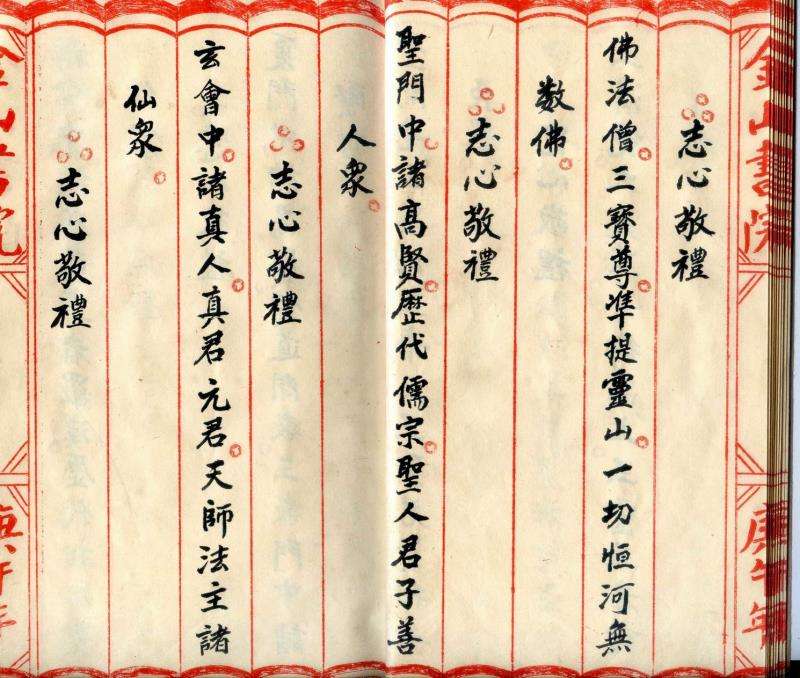 金山書院
庚午年
志心敬禮
佛法僧三寶尊準提靈山一切恒河無
数佛
志心敬禮
聖門中諸高賢歷代儒宗聖人君子善
人衆
志心敬禮
玄會中諸真人真君元君天師法主諸
仙衆
志心敬禮